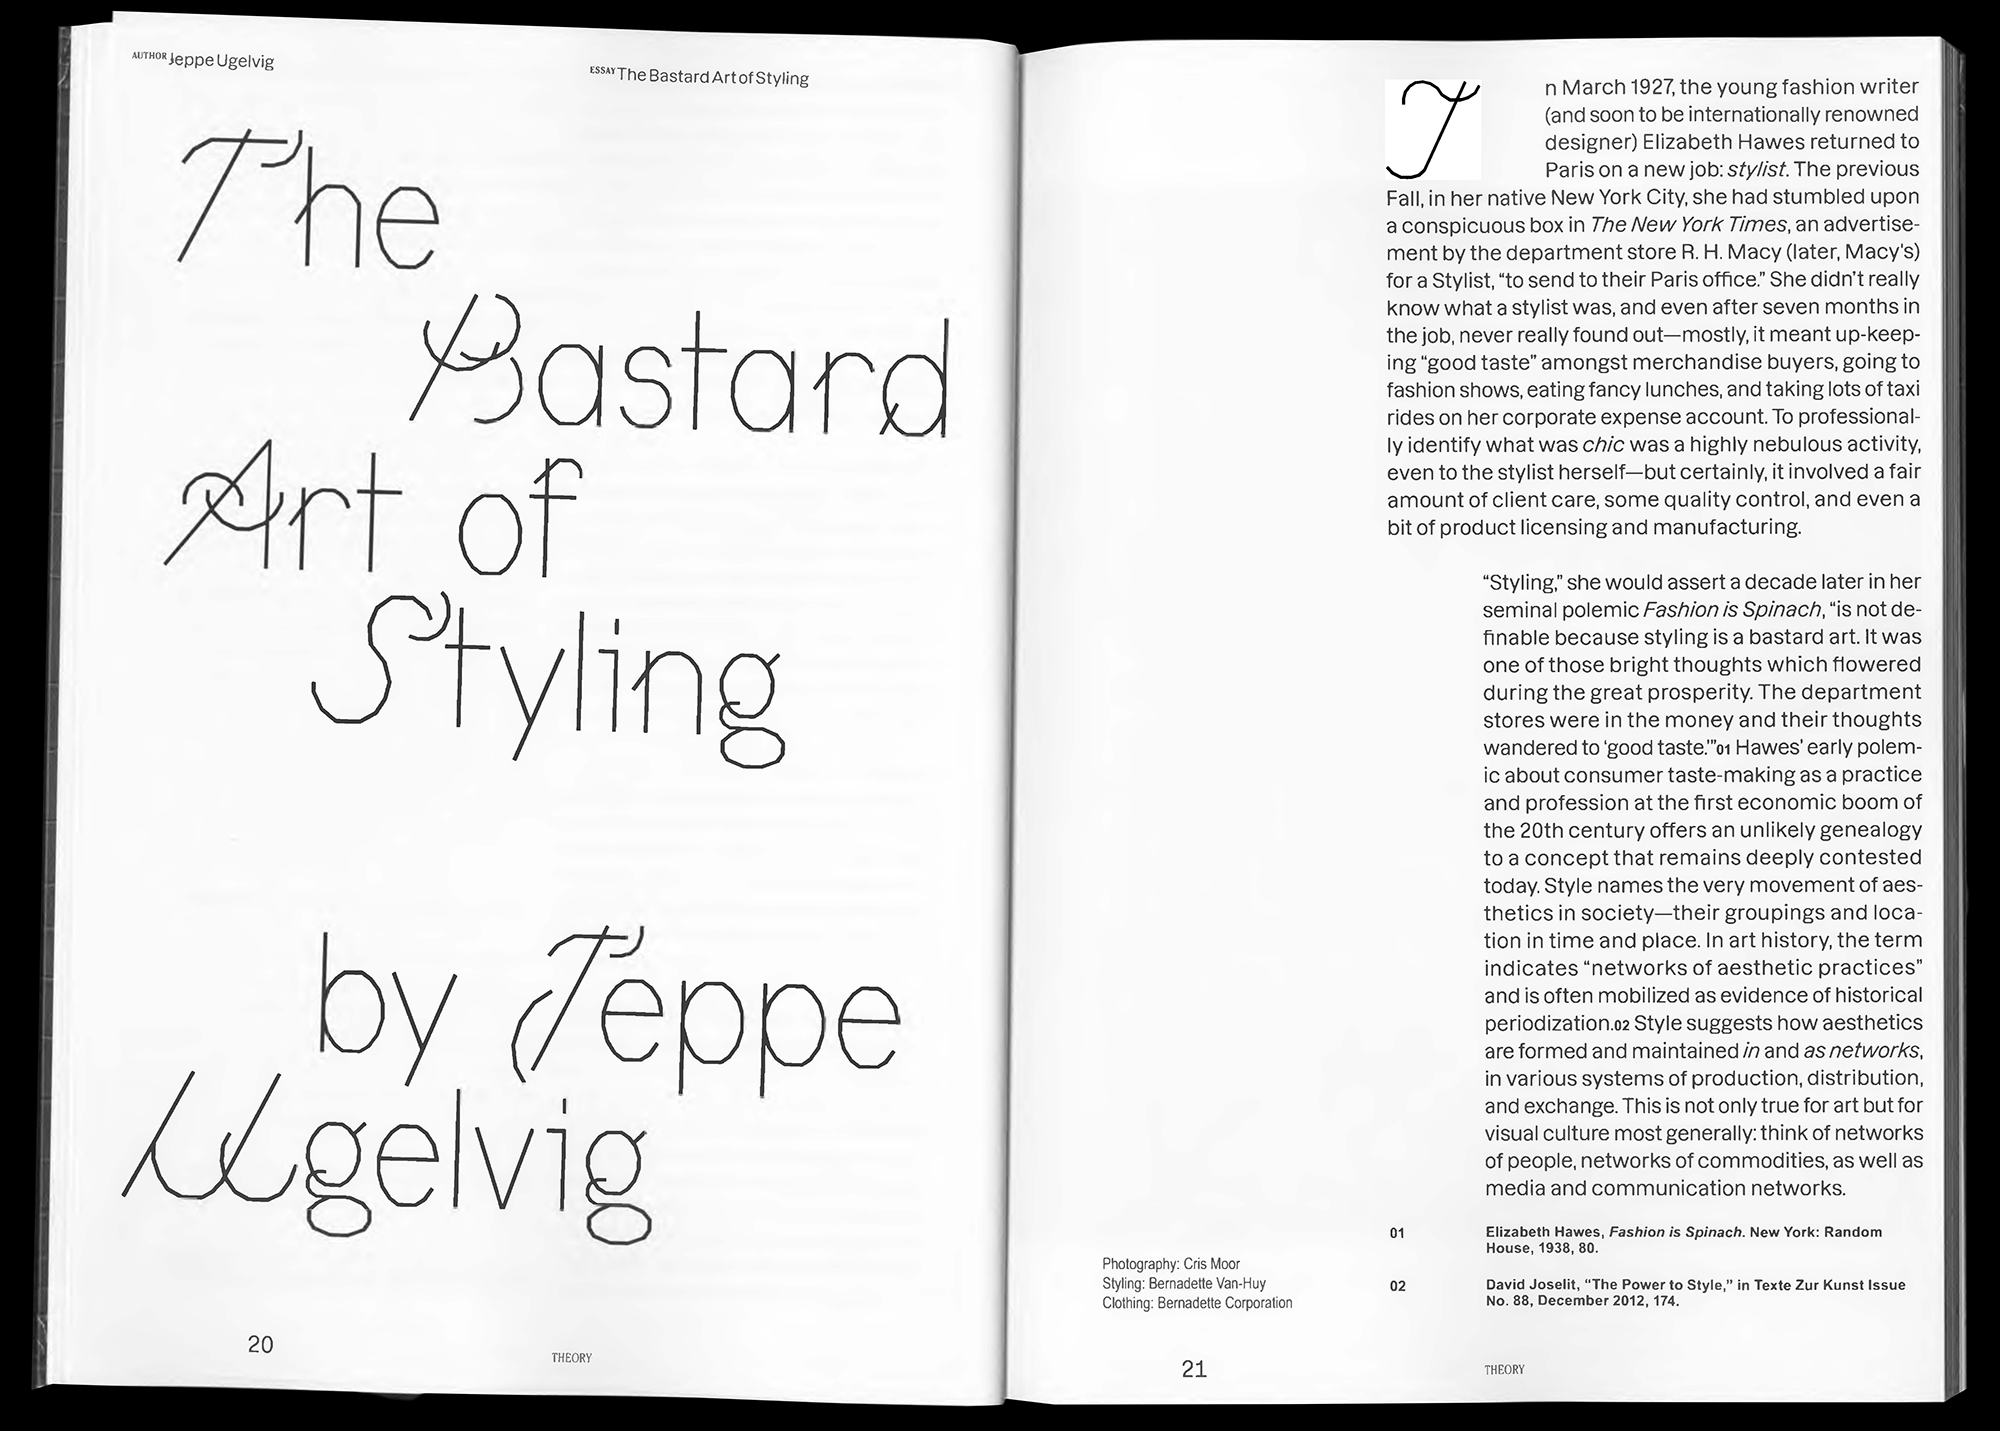 AUTHOR Jeppe Ugelvig
ESSAY The Bastard Art of Styling
The
Bastard
Art of
Styling
by Jeppe
Ugelvig
20
THEORY
In March 1927, the young fashion writer
(and soon to be internationally renowned
designer) Elizabeth Hawes returned to
Paris on a new job: stylist. The previous
Fall, in her native New York City, she had stumbled upon
a conspicuous box in The New York Times, an advertise-
ment by the department store R. H. Macy (later, Macy's)
for a Stylist, “to send to their Paris office.” She didn’t really
know what a stylist was, and even after seven months in
the job, never really found out—mostly, it meant up-keep-
ing “good taste” amongst merchandise buyers, going to
fashion shows, eating fancy lunches, and taking lots of taxi
rides on her corporate expense account. To professional-
ly identify what was chic was a highly nebulous activity,
even to the stylist herself—but certainly, it involved a fair
amount of client care, some quality control, and even a
bit of product licensing and manufacturing.
“Styling,” she would assert a decade later in her
seminal polemic Fashion is Spinach, “is not de-
finable because styling is a bastard art. It was
one of those bright thoughts which flowered
during the great prosperity. The department
stores were in the money and their thoughts
wandered to ‘good taste.’”01 Hawes’ early polem-
ic about consumer taste-making as a practice
and profession at the first economic boom of
the 20th century offers an unlikely genealogy
to a concept that remains deeply contested
today. Style names the very movement of aes-
thetics in society—their groupings and loca-
tion in time and place. In art history, the term
indicates “networks of aesthetic practices”
and is often mobilized as evidence of historical
periodization.02 Style suggests how aesthetics
are formed and maintained in and as networks,
in various systems of production, distribution,
and exchange. This is not only true for art but for
visual culture most generally: think of networks
of people, networks of commodities, as well as
media and communication networks.
01 Elizabeth Hawes, Fashion is Spinach. New York: Random
House, 1938, 80.
02 David Joselit, “The Power to Style,” in Texte Zur Kunst Issue
No. 88, December 2012, 174.
Photography: Cris Moor
Styling: Bernadette Van-Huy
Clothing: Bernadette Corporation
21
THEORY